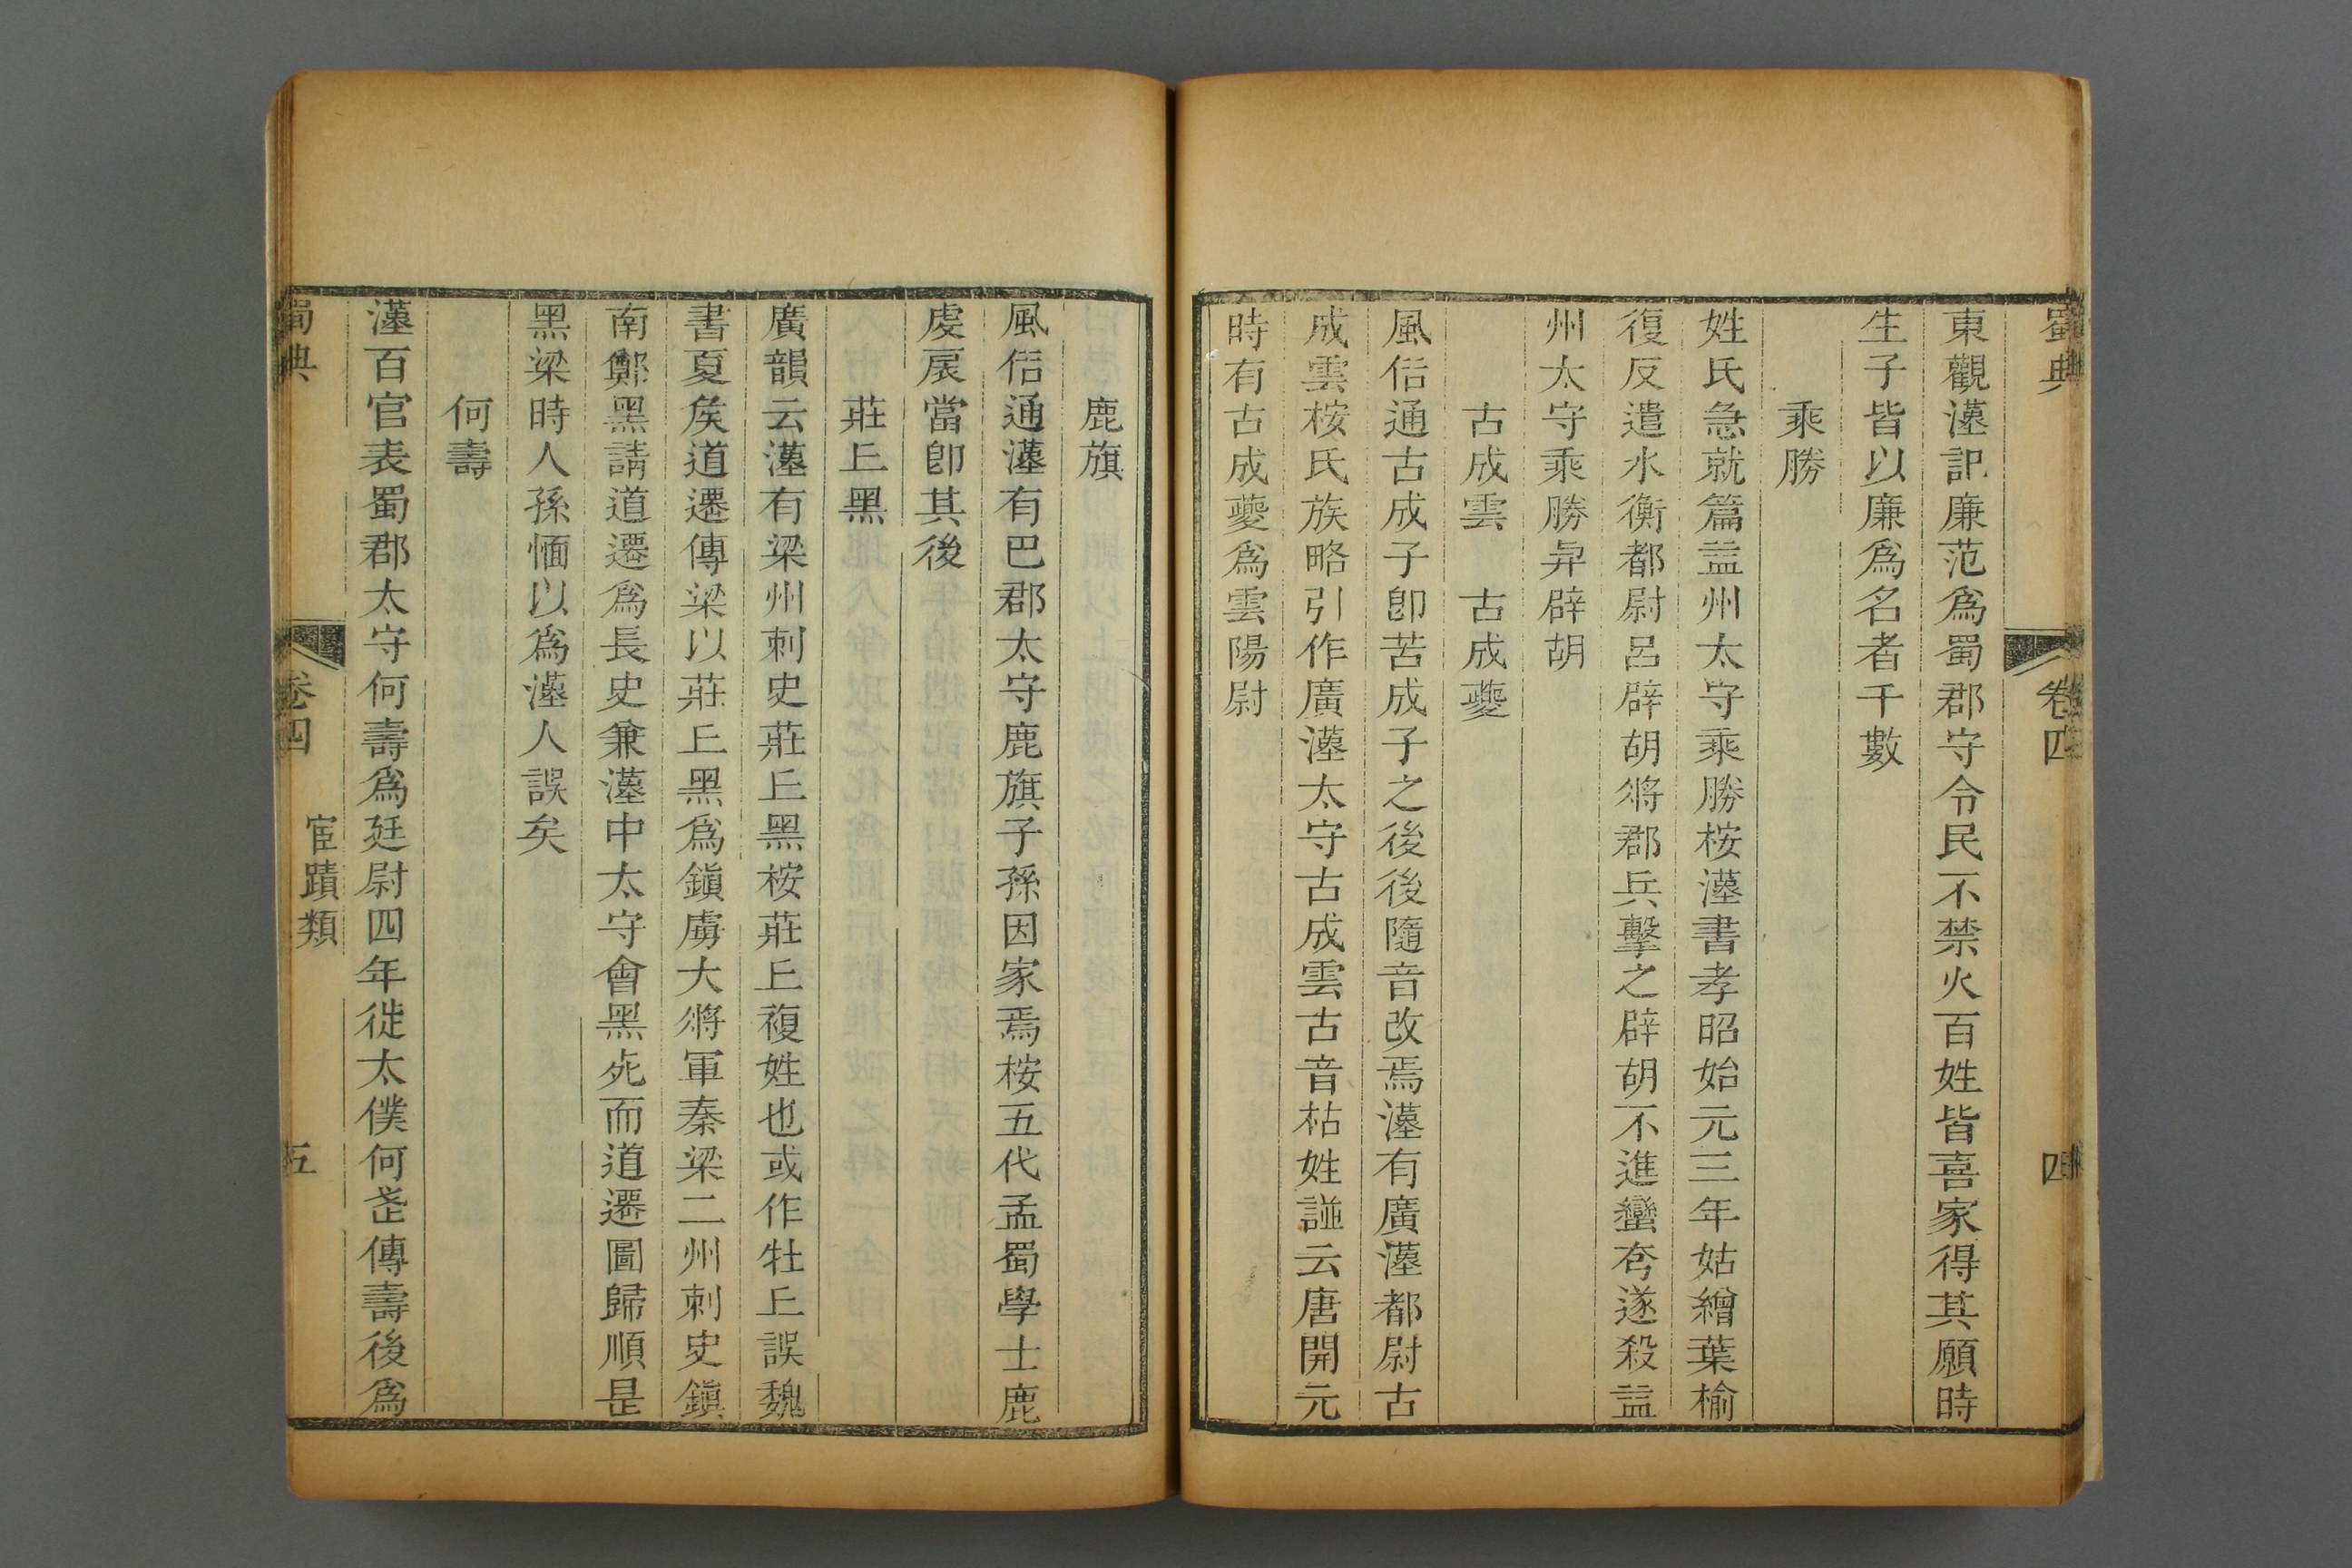 蜀典 卷四 四
東觀漢記廉范爲蜀郡守令民不禁火百姓皆喜家得其願時
生子皆以廉爲名者千數
乘勝
姓氏急就篇益州太守乘勝桉漢書孝昭始元三年姑繒葉榆
復反遣水衡都尉呂辟胡將郡兵擊之辟胡不進蠻夸遂殺益
州太守乘勝舁辟胡
古成雲 古成夔
風俗通古成子卽苦成子之後後隨音改焉漢有廣漢都尉古
成雲桉氏族略引作廣漢太守古成雲古音枯姓諡云唐開元
時有古成夔爲雲陽尉
鹿旗
風俗通漢有巴郡太守鹿旗子孫因家焉桉五代孟蜀學士鹿
虔扆當卽其後
莊丘黑
廣韻云漢有梁州刺史莊丘黑桉莊丘複姓也或作牡丘誤魏
書夏矦道遷傳梁以莊丘黑爲鎮虜大將軍秦梁二州刺史鎮
南鄭黑請道遷爲長史兼漢中太守會黑死而道遷圖歸順是
黑梁時人孫愐以爲漢人誤矣
何壽
漢百官表蜀郡太守何壽爲廷尉四年徙太僕何武傳壽後爲
蜀典 卷四 宦蹟類 五